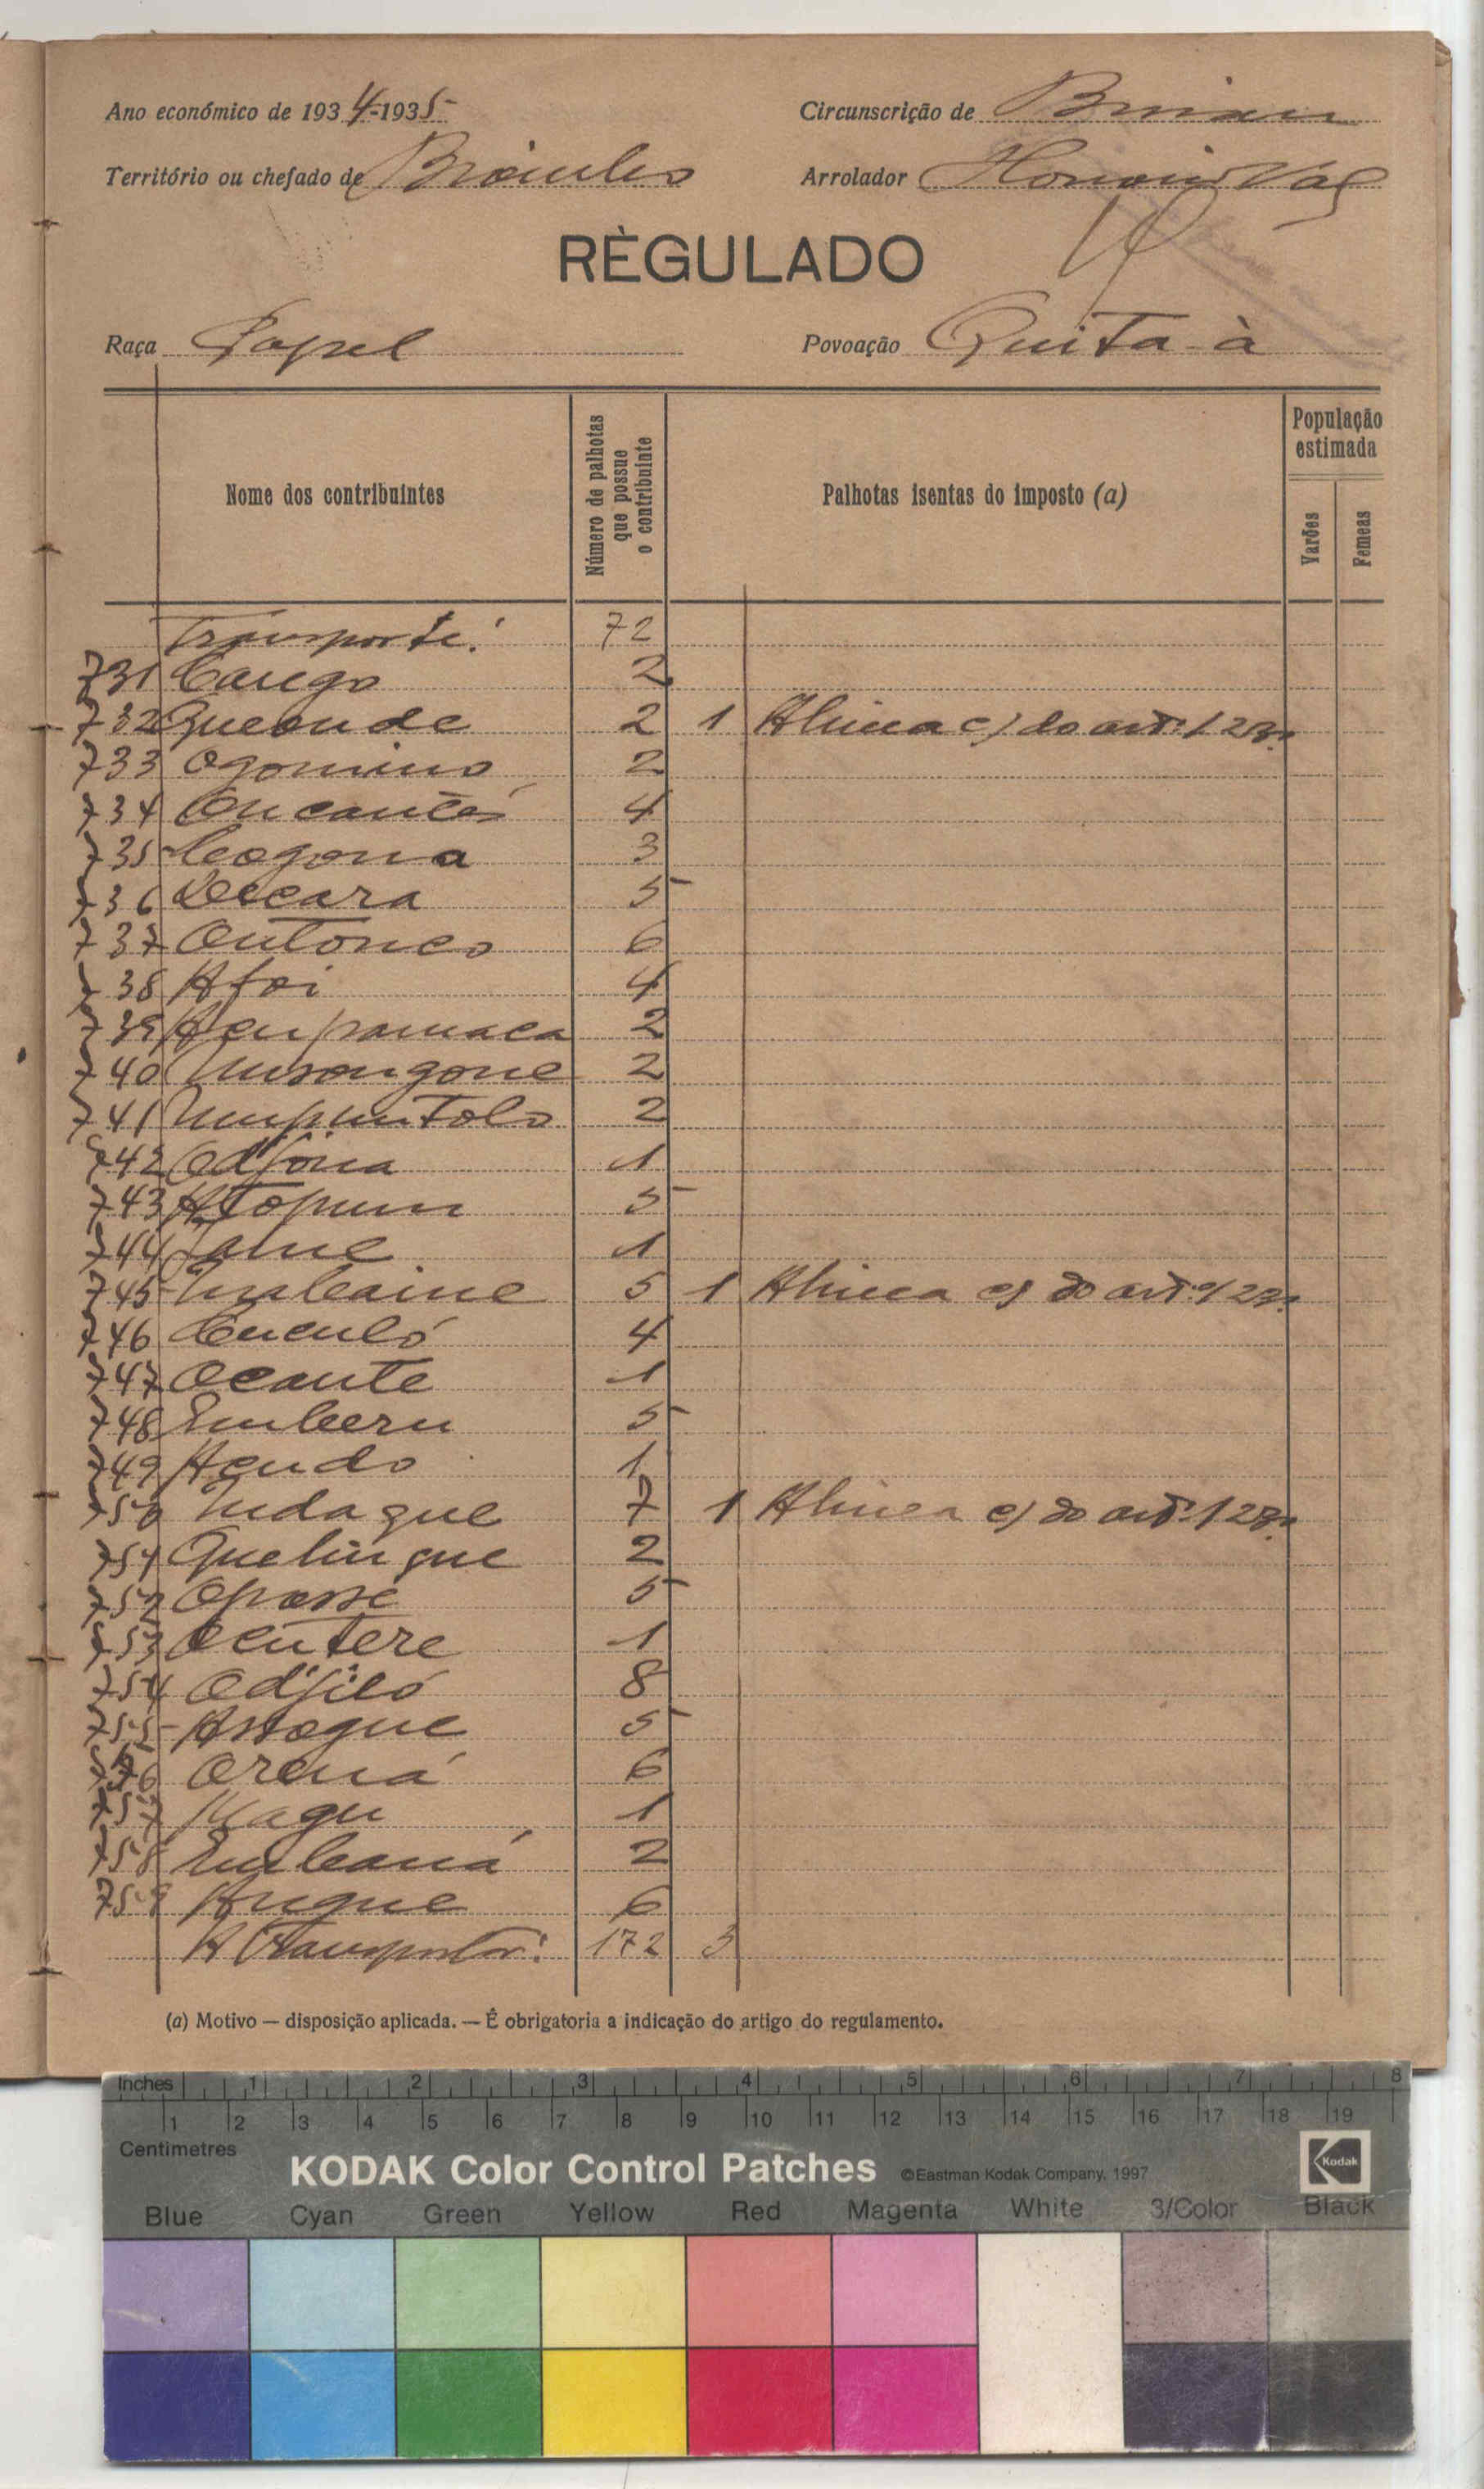 Ano económico de 1934-1935
Circunscrição de
Território ou chefado de
Arrolador Vaz
RÈGULADO
Raça Papel
Povoação Quita-à
Nome dos contribuintes
Número de palhotas que possue o contribuinte
Palhotas isentas do imposto (a)
População estimada
Varões
Femeas
Transporte: 72
731 Cango 2
732 Queounde 2 1 Alinea c) do artº 123º
733 Ogonino 2
734 Oncanté 4
735 Cogona 3
736 5
737 Ontonco 6
738 Afoi 4
739 2
740 Unsongone 2
741 Umpuntolo 2
742 Odjona 1
743 Atopum 5
744 1
745 5 1 Alinea c) do artº 123º
746 Cuculó 4
747 Ocante 1
748 5
749 1
750 Indaque 7 1 Alinea c) do artº 123º
751 Quelinque 2
752 Opasse 5
753 1
754 Odjiló 8
755 5
756 Orená 6
757 1
758 2
759 6
A transportar: 172 3
(a) Motivo — disposição aplicada. — É obrigatoria a indicação do artigo do regulamento.
Inches 1 2 3 4 5 6 7 8
1 2 3 4 5 6 7 8 9 10 11 12 13 14 15 16 17 18 19
Centimetres
KODAK Color Control Patches ©Eastman Kodak Company, 1997 Kodak
Blue Cyan Green Yellow Red Magenta White 3/Color Black